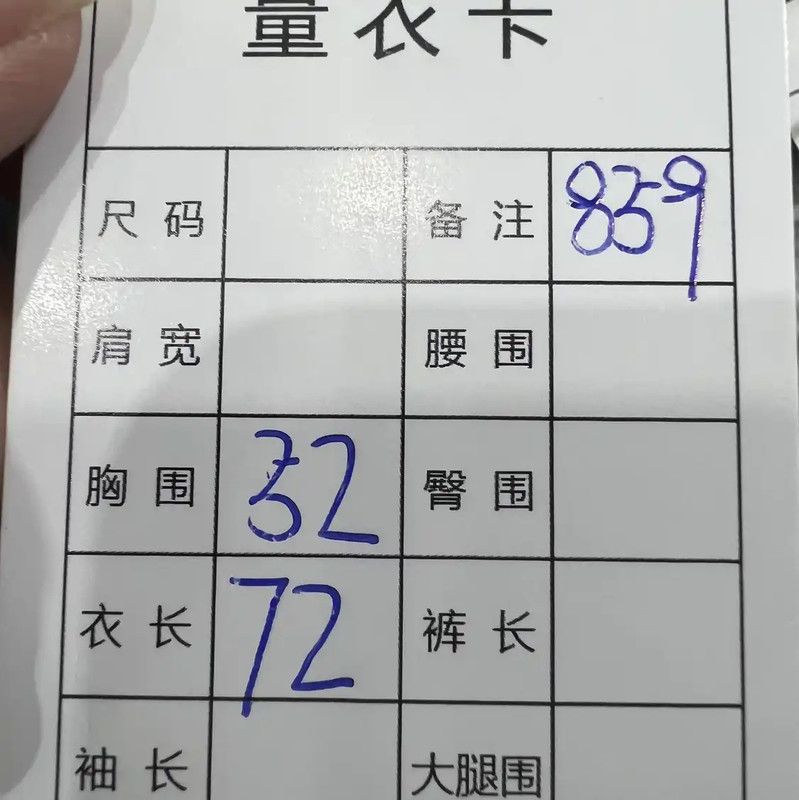 量衣卡
尺码 备注 859
肩宽 腰围
胸围 52 臀围
衣长 72 裤长
袖长 大腿围